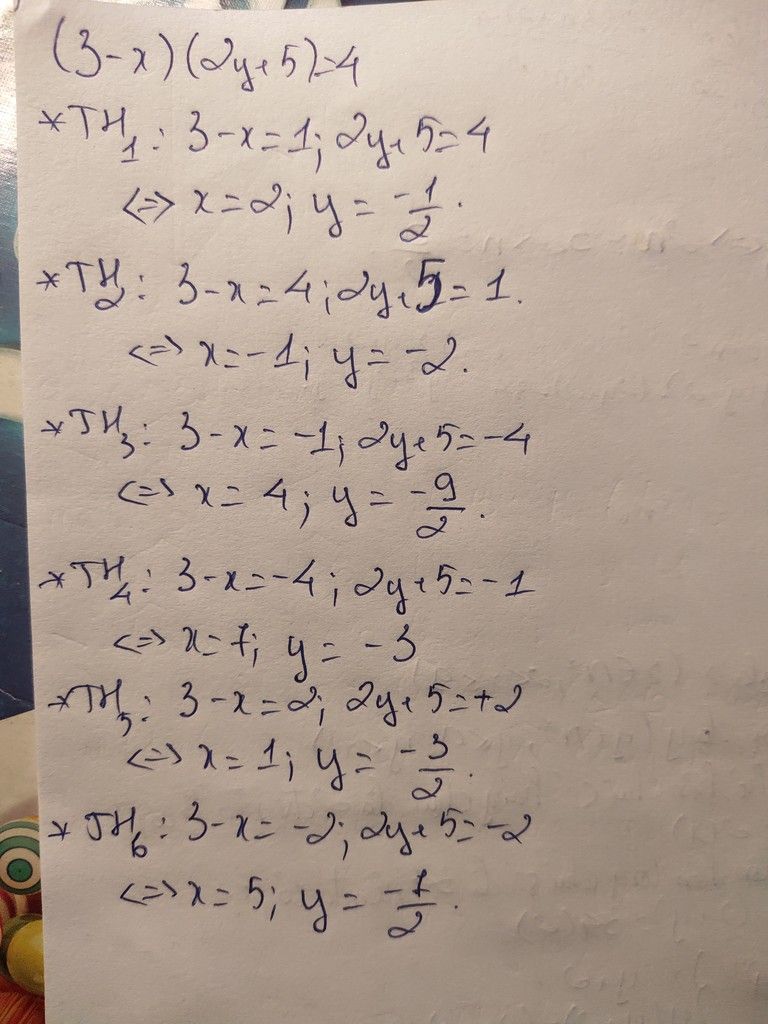 (3-x)(2y+5)=4
*TH1: 3-x=1; 2y+5=4
<=> x=2; y=-1/2.
*TH2: 3-x=4; 2y+5=1.
<=> x=-1; y=-2.
*TH3: 3-x=-1; 2y+5=-4
<=> x=4; y=-9/2.
*TH4: 3-x=-4; 2y+5=-1
<=> x=7; y=-3
*TH5: 3-x=2; 2y+5=+2
<=> x=1; y=-3/2.
*TH6: 3-x=-2; 2y+5=-2
<=> x=5; y=-7/2.